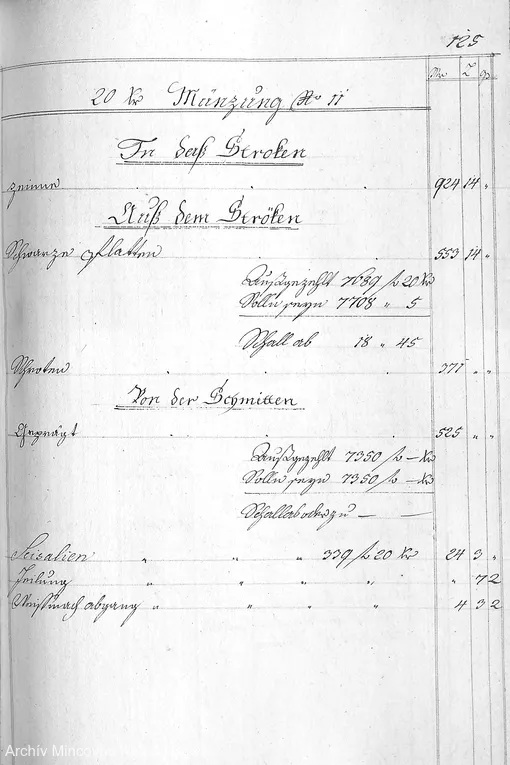 125
20 Kr Münzung No 11
In daß Stroken
Zeinne 924 14 "
Auß dem Ströken
Schwarze Platten 553 14 "
Außgezehlt 7689 f 20 Kr
Solln seyn 7708 " 5
Schall ab 18 " 45
Schroten 371 " "
Von der Schmitten
Gepragt 525 " "
Außgezehlt 7350 f — Kr
Solln seyn 7350 f — Kr
Schall ab oder zu — —
Scisalien " " " 339 f 20 Kr 24 3 "
Feilung " " " " " 7 2
abgang " " " " 4 3 2
Archív Mincovne